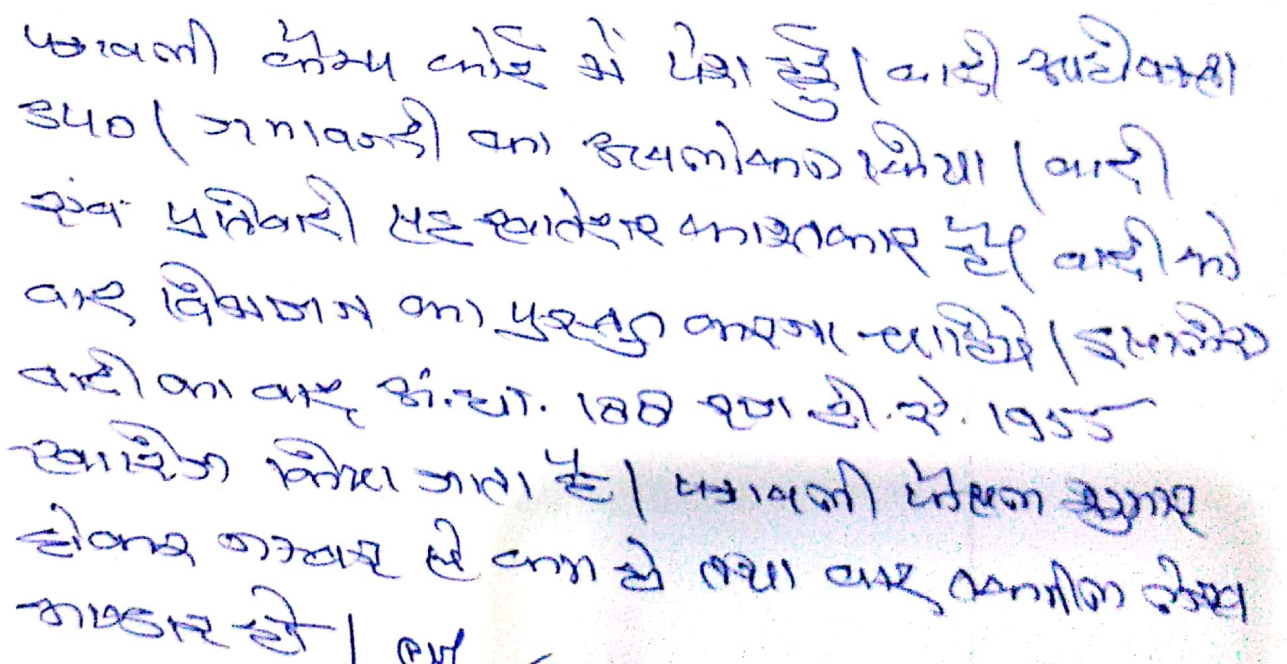 पत्रावली कैम्प कोर्ट में पेश हुई। वादी
उप०। जमाबन्दी का अवलोकन किया। वादी
एवं प्रतिवादी सह खातेदार काश्तकार हैं। वादी को
वाद विभाजन का प्रस्तुत करना चाहिये। इसलिये
वादी का वाद अं.धा. 188 रा.टी.ऐ. 1955
खारिज किया जाता है। पत्रावली फैसल शुमार
होकर नम्बर से कम हो तथा बाद तकमील लेख
भण्डार हो।